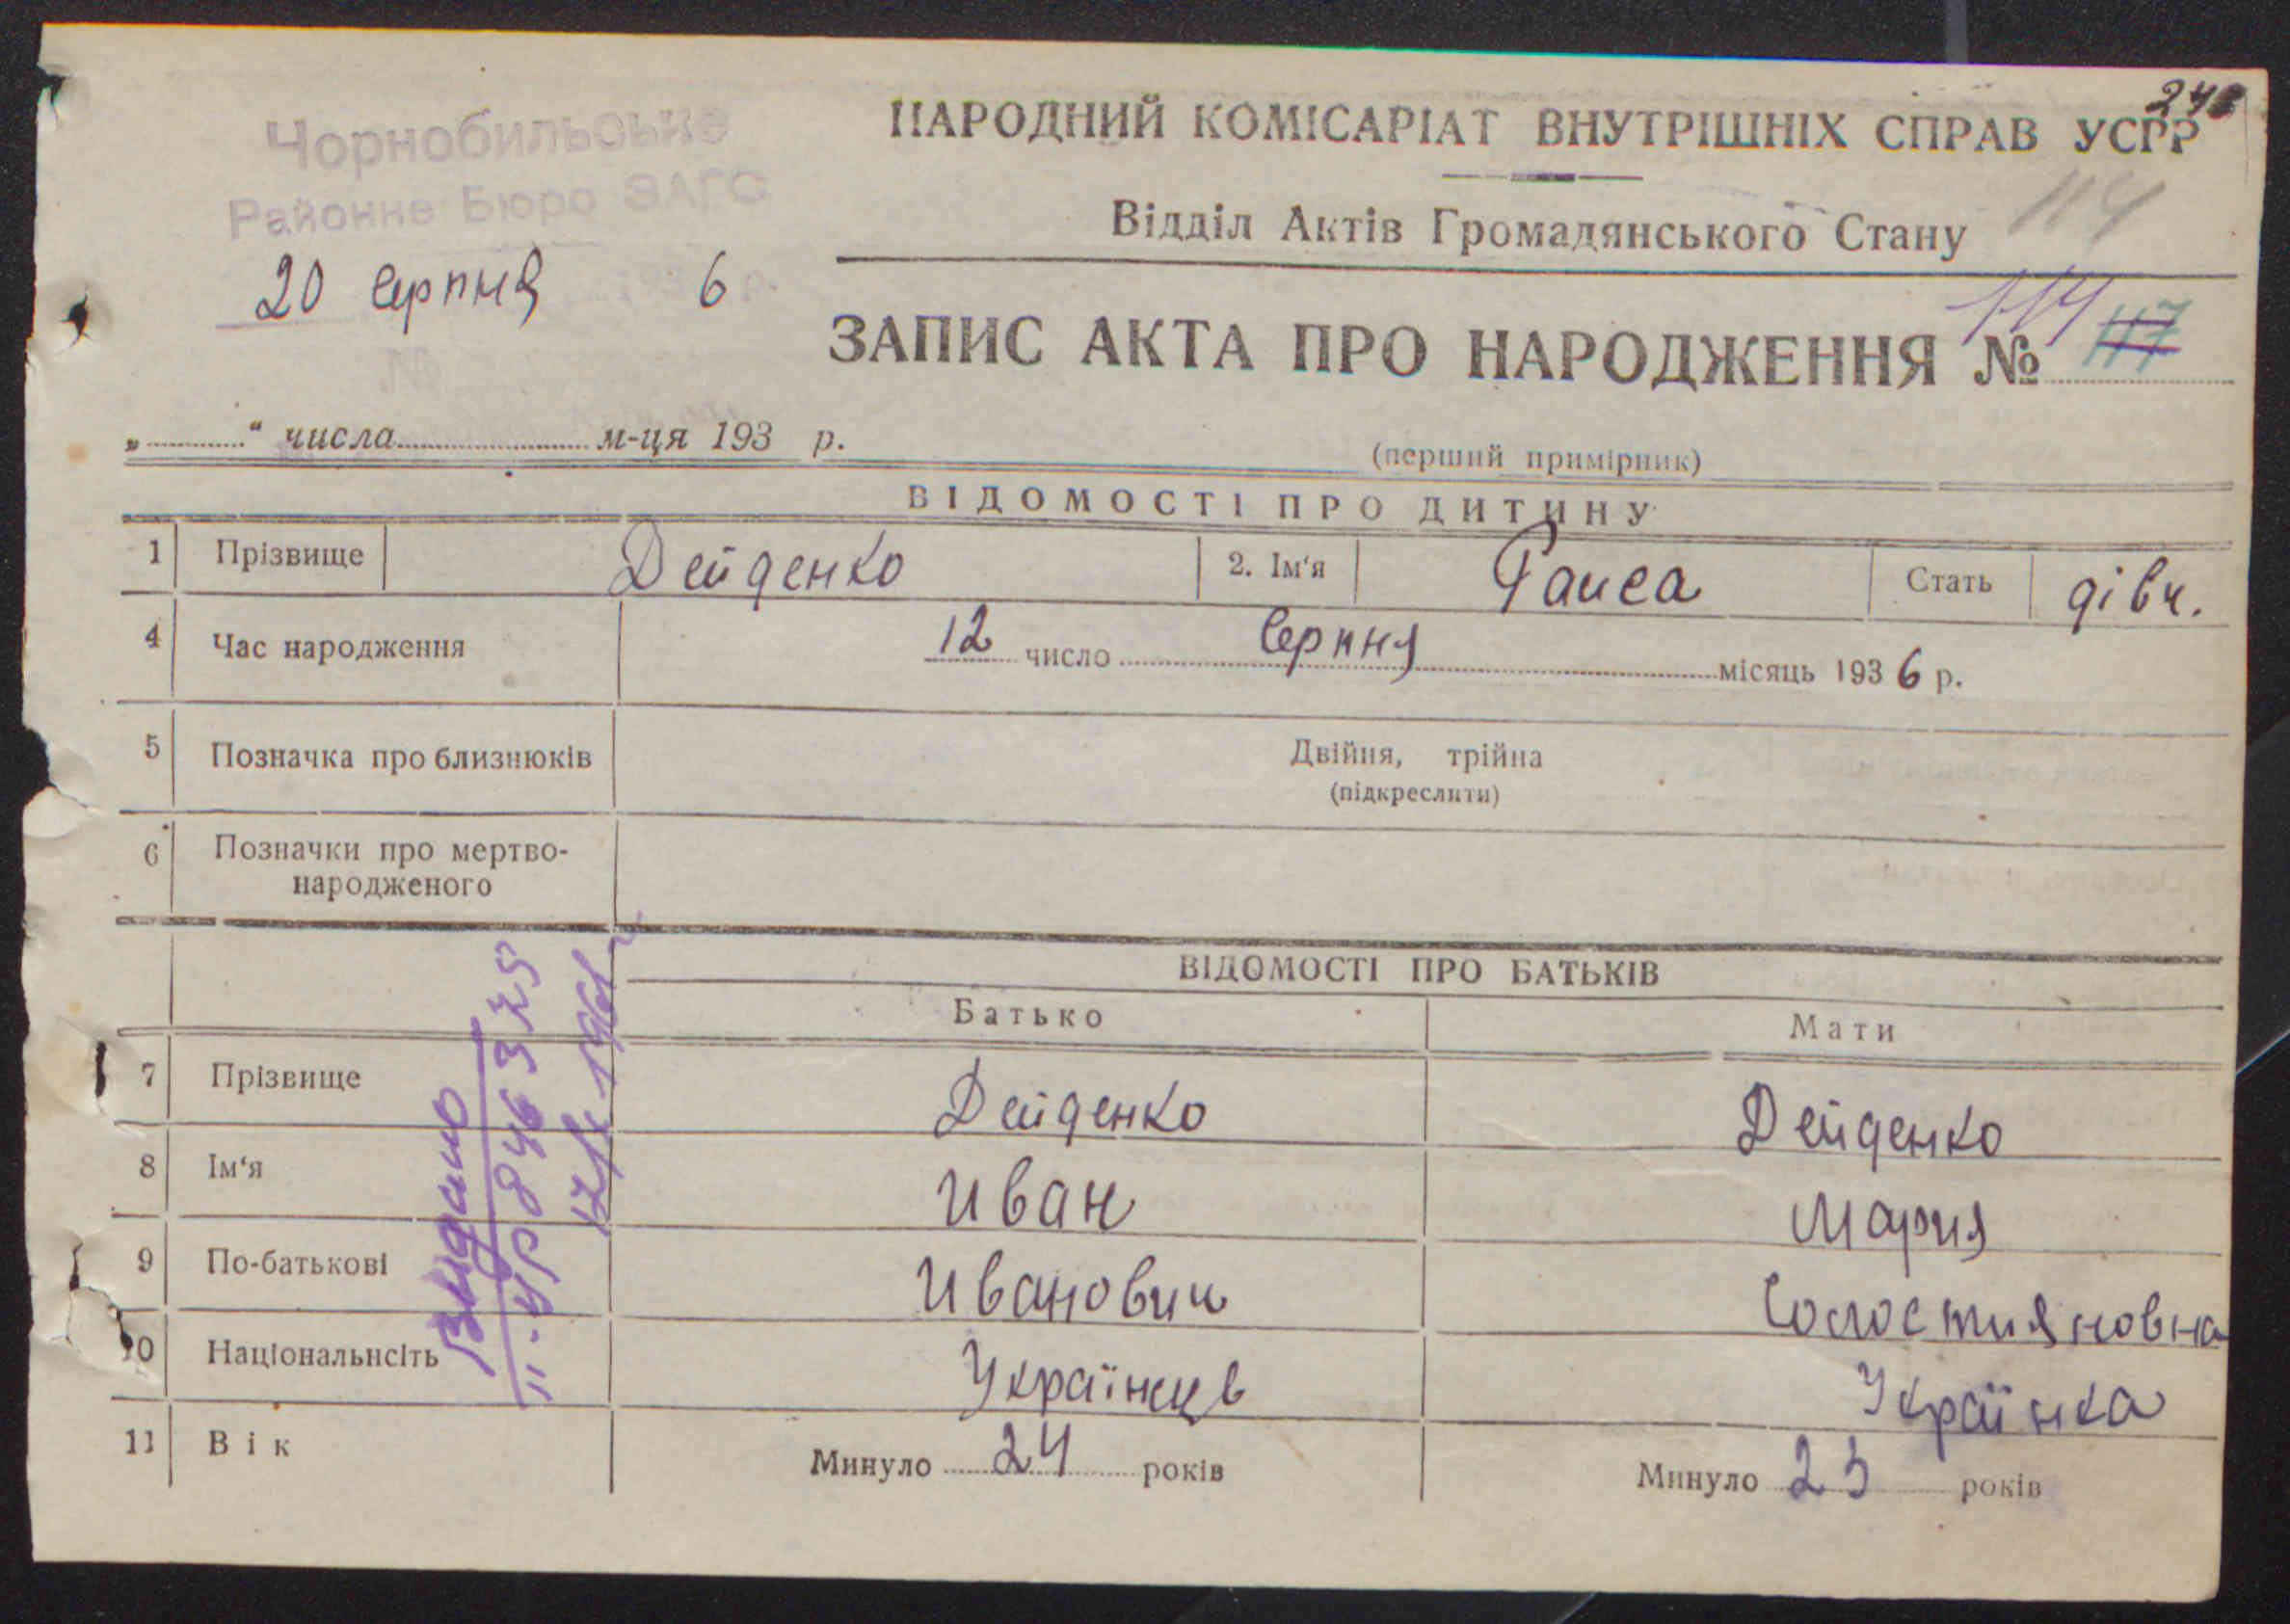 Чорнобильське
Районне Бюро ЗАГС
20 серпня 1936 р.
№
НАРОДНИЙ КОМІСАРІАТ ВНУТРІШНІХ СПРАВ УСРР
Відділ Актів Громадянського Стану
114
ЗАПИС АКТА ПРО НАРОДЖЕННЯ № 114 117
„ “ числа м-ця 193 р.
(перший примірник)
ВІДОМОСТІ ПРО ДИТИНУ
1 Прізвище Дейденко 2. Ім‘я Раиса Стать дівч.
4 Час народження 12 число Серпня місяць 1936 р.
5 Позначка про близнюків Двійня, трійна
(підкреслити)
6 Позначки про мертво-
народженого
ВІДОМОСТІ ПРО БАТЬКІВ
Батько Мати
7 Прізвище Дейденко Дейденко
8 Ім‘я Иван Мария
9 По-батькові Иванович
10 Національнсіть Українець Українка
11 Вік Минуло 24 років Минуло 23 років
Видано